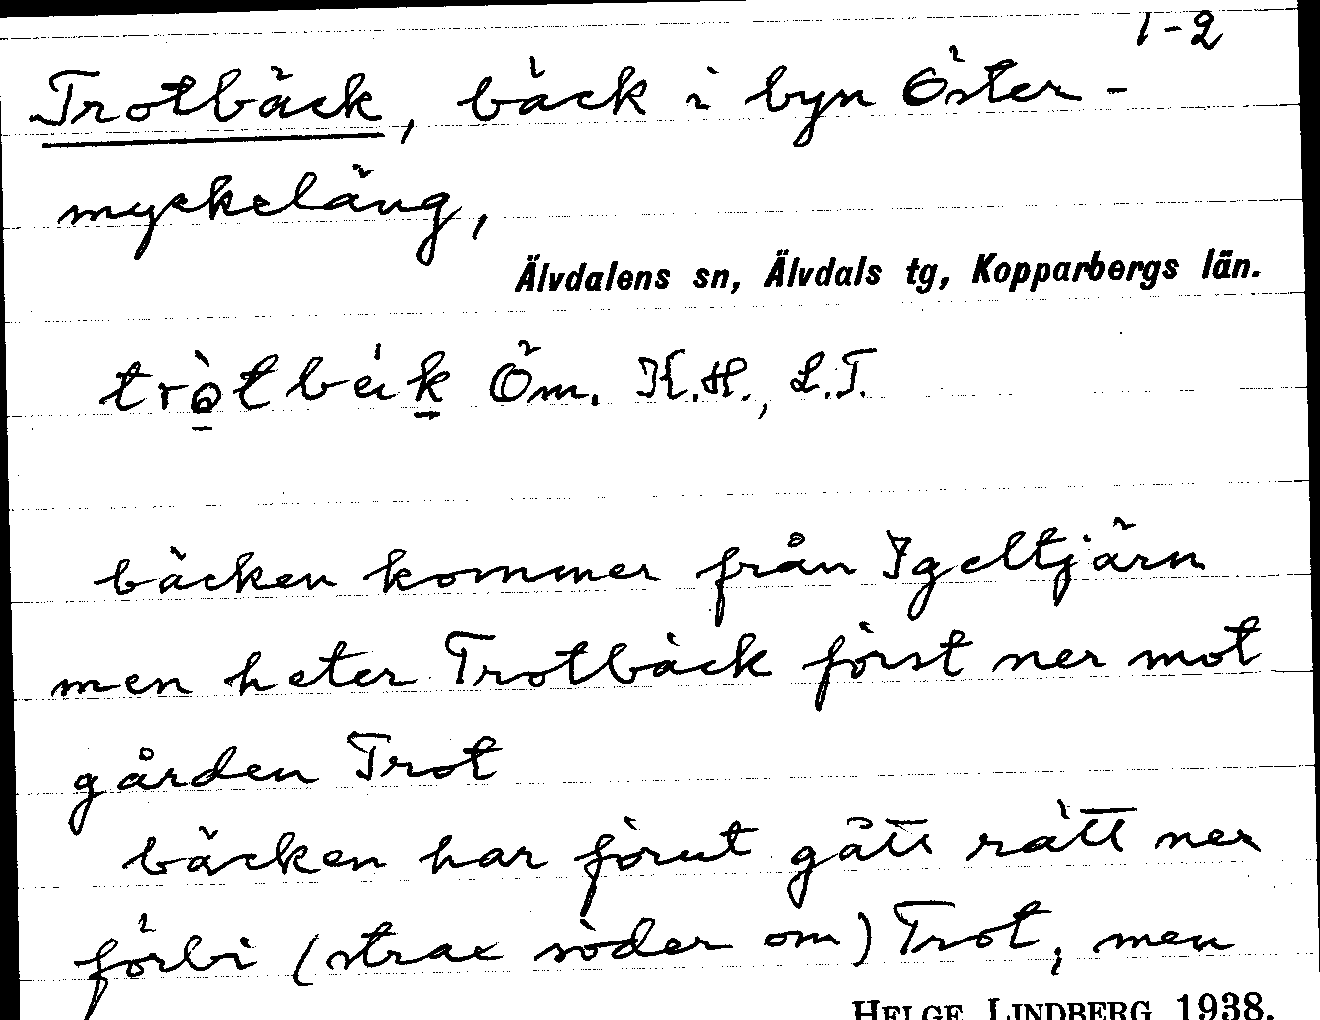 1-2
Trotbäck, bäck i byn Öster-
myckeläng,
Älvdalens sn, Älvdals tg, Kopparbergs län.
tròtbäk Öm. K.H., L.T.
bäcken kommer från Igeltjärn
men heter Trotbäck först ner mot
gården Trot
bäcken har förut gått rätt ner
förbi (strax söder om) Trot, men
HELGE LINDBERG 1938.